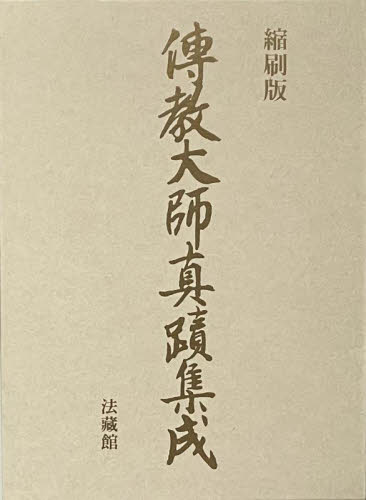 縮刷版
傳教大師真蹟集成
法藏館